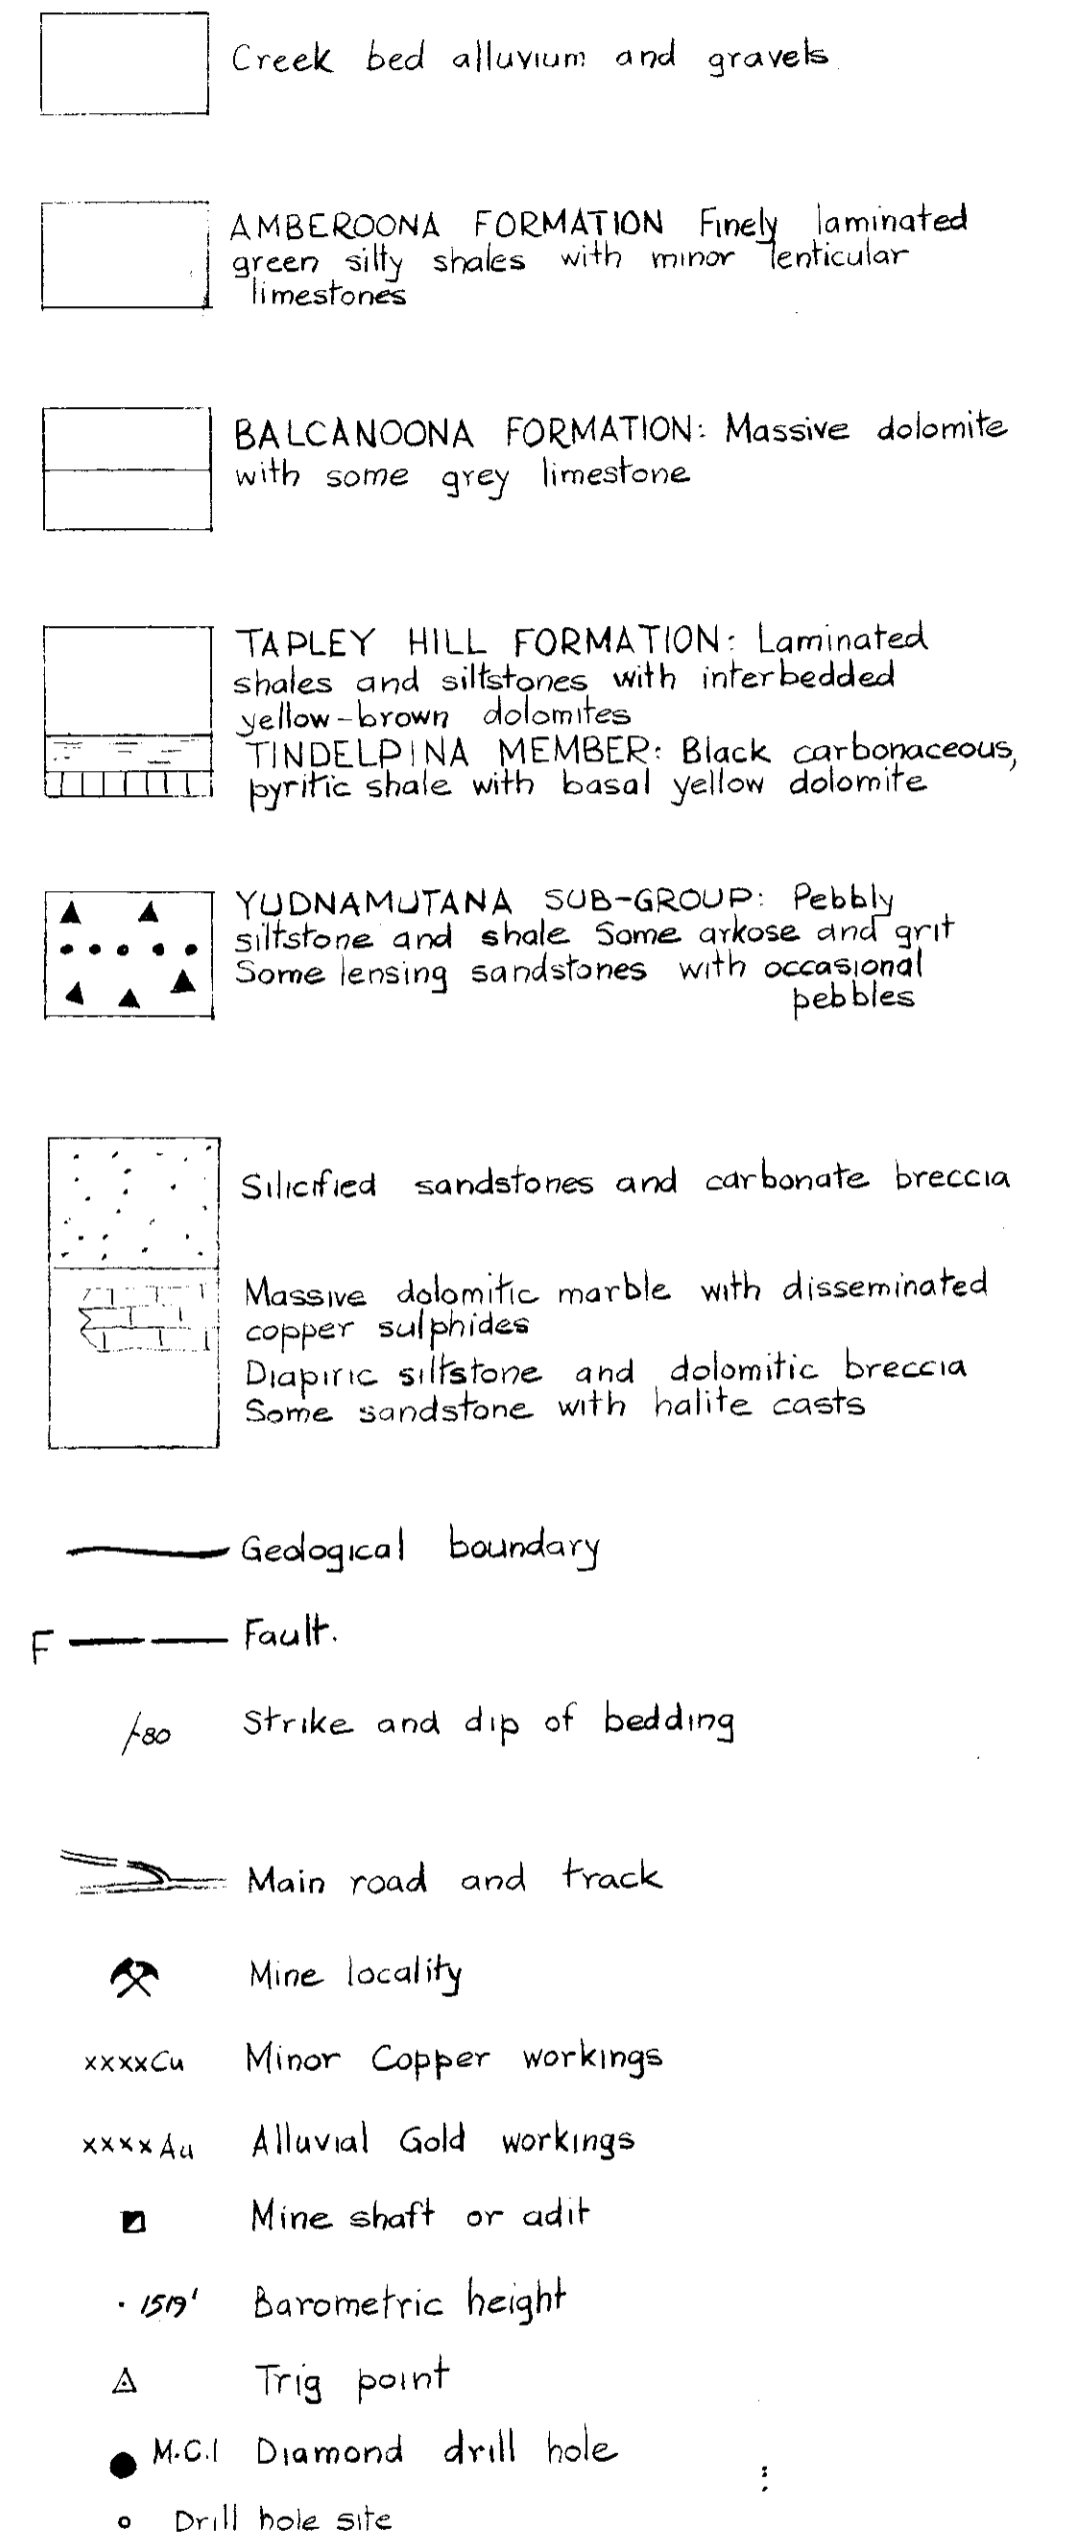 Creek bed alluvium and gravels
AMBEROONA FORMATION Finely laminated
green silty shales with minor lenticular
limestones
BALCANOONA FORMATION: Massive dolomite
with some grey limestone
TAPLEY HILL FORMATION: Laminated
shales and siltstones with interbedded
yellow-brown dolomites
TINDELPINA MEMBER: Black carbonaceous,
pyritic shale with basal yellow dolomite
YUDNAMUTANA SUB-GROUP: Pebbly
siltstone and shale Some arkose and grit
Some lensing sandstones with occasional
pebbles
Silicified sandstones and carbonate breccia
Massive dolomitic marble with disseminated
copper sulphides
Diapiric siltstone and dolomitic breccia
Some sandstone with halite casts
Geological boundary
F Fault.
80 Strike and dip of bedding
Main road and track
Mine locality
xxxxCu Minor Copper workings
xxxxAu Alluvial Gold workings
Mine shaft or adit
· 1519' Barometric height
Trig point
M.C.1 Diamond drill hole
Drill hole site